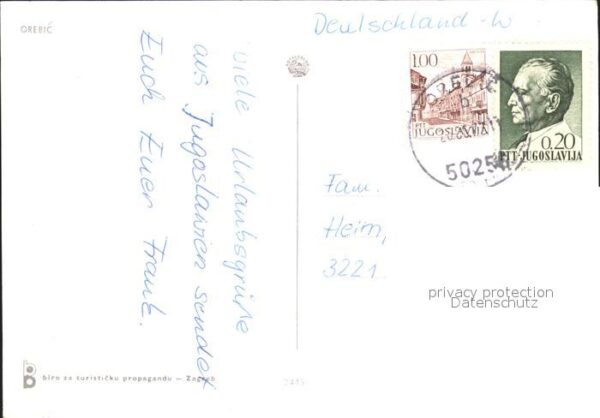 OREBIĆ
Deutschland-W
1.00
PTT
JUGOSLAVIJA
0.20
PTT-JUGOSLAVIJA
50250
viele Urlaubsgrüße
aus Jugoslawien sendet
Euch Euer Frank.
Fam.
Heim,
3221
privacy protection
Datenschutz
biro za turističku propagandu — Zagreb